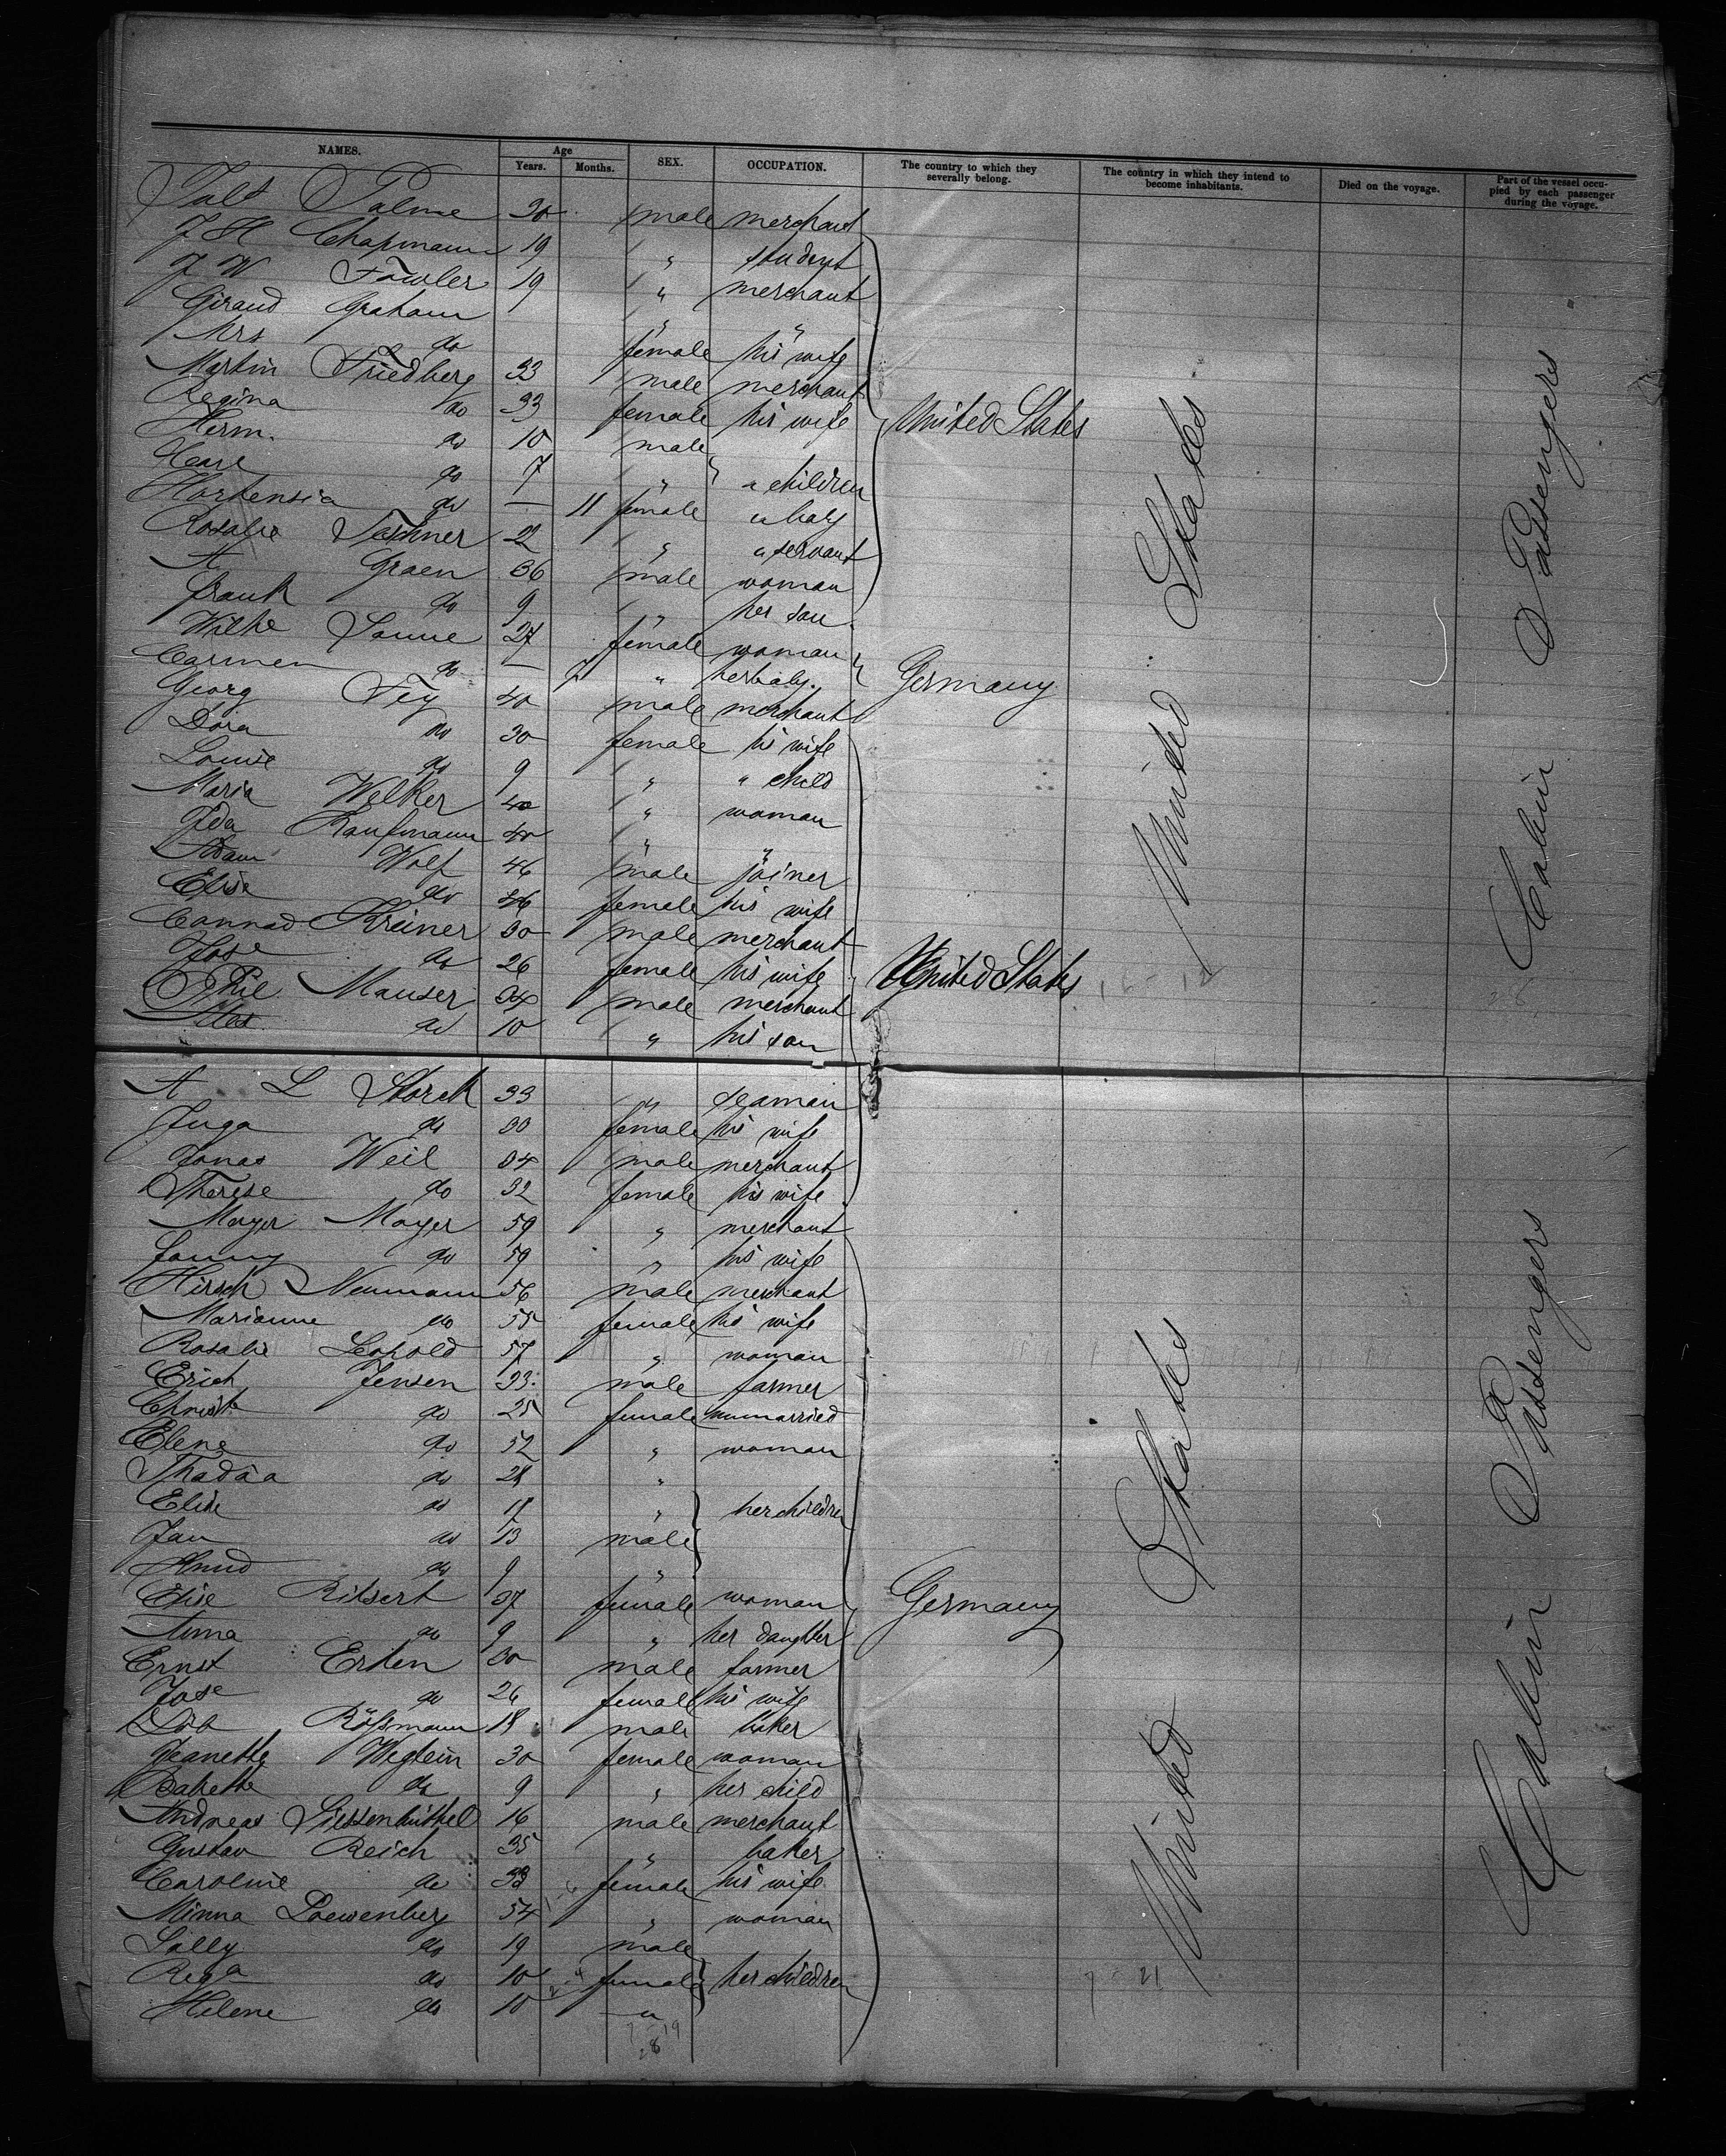 NAMES. Age SEX. OCCUPATION. The country to which they severally belong. The country in which they intend to become inhabitants. Died on the voyage. Part of the vessel occupied by each passenger during the voyage.
Years. Months.
Palme 30 male merchant
J H Chapmann 19 " student
J W Fowler 19 " merchant
Giraud Graham " "
Mrs do female his wife
Martin Friedberg 33 male merchant
Regina do 33 female his wife United States
Herm. do 10 male
Carl do 7 " " children
Hortensia do — 11 female " baby
Rosalie 22 " " servant
A. Graen 36 male woman
Frank do 9 " her son
Wilhe Sonne 27 female woman
Carmen do — 7 " her baby. Germany
Georg Fey 40 male merchant
Dora do 30 female his wife
Louise do 9 " " child
Maria Welker 40 " woman
Ida Kaufmann 40 " "
Adam Wolf 46 male joiner
Elise do 46 female his wife
Connad Kreiner 30 male merchant
Jose do 26 female his wife United States
Phil Mauser 34 male merchant
do 10 " his son
A L Storck 33 " seaman
Juga do 30 female his wife
Jonas Weil 34 male merchant
Therese do 32 female his wife
Mayer Mayer 59 " merchant
Fanny do 59 " his wife
Hirsch Neumann 56 male merchant
Marianne do 55 female his wife
Rosalie Leopold 57 " woman
Erich Jensen 33 male farmer
Christe do 25 female unmarried
Elene do 52 " woman
Thadäa do 21 "
Elise do 17 " her children
Jan do 13 male
Knud do 9 "
Elise Ritsert 37 female woman Germany
Anna do 9 " her daughter
Ernst Erken 30 male farmer
Jose do 26 female his wife
Roßmann 18 male baker
Jeanette Weglein 30 female woman
Babette do 9 " her child
Andreas 16 male merchant
Gustav Reich 35 " baker
Caroline do 33 female his wife
Minna Loewenberg 54 " woman
Sally do 19 male
Rega do 10 female her children
Helene do 10 "
United States
Cabin Passengers
United States
Cabin Passengers